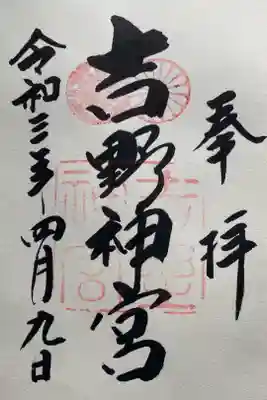 奉拝
吉野神宮
令和三年四月九日